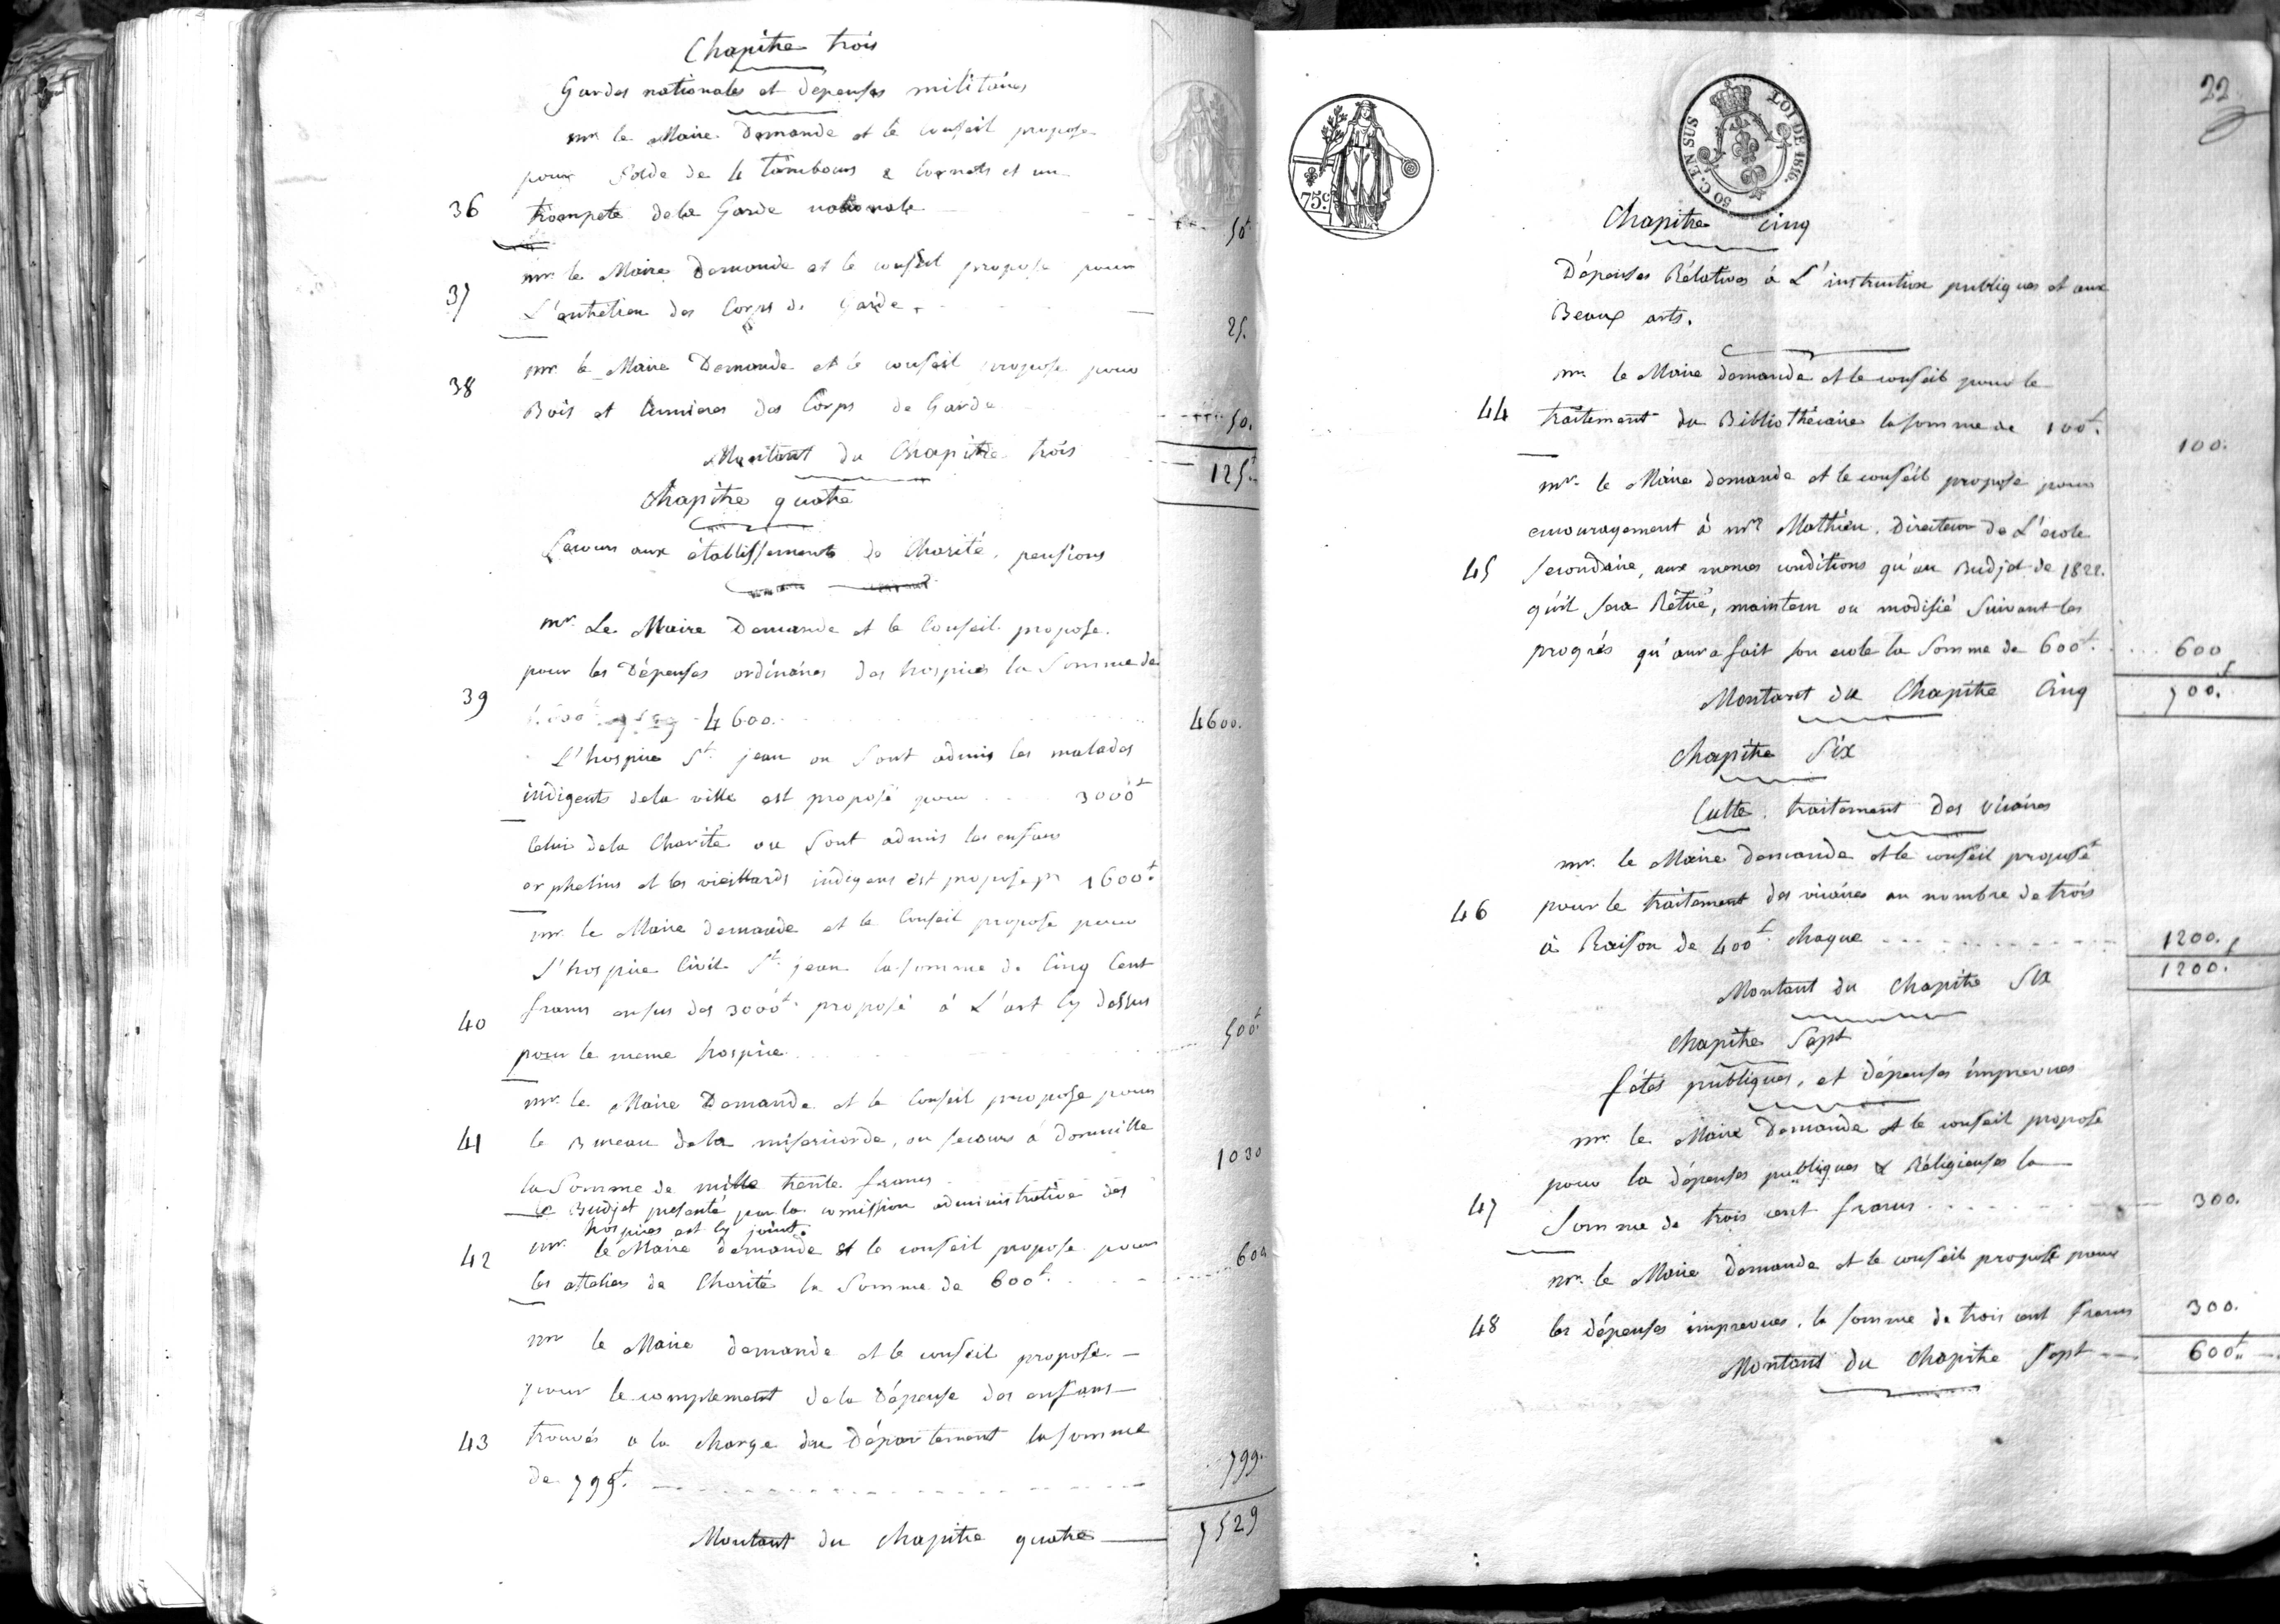 Chapitre trois
Gardes nationales et dépenses militaires
mr. le Maire Demande et le conseil propose
pour Solde de 4 tambours & Cornets et un
36 trompete dela Garde nationale 50f
mr. le Maire Demande et le conseil propose pour
37 L'entretien des Corps de Garde. 25.
mr. le Maire Demande et le conseil propose pour
38 Bois et lumieres des Corps de Garde 50.
Montant du Chapitre trois 125f
Chapitre quatre
Secours aux établissements de Charité, pensions
mr. Le Maire Demande et le Conseil propose.
pour les Dépenses ordinaires des hospices la Somme de
39 4600. 4600.
L'hospice St. jean ou Sont admis les malades
indigents dela ville est proposé pour 3000f
Celui dela Charité ou Sont admis les enfans
orphelins et les vieillards indigens est proposé pr 1600f.
mr. le Maire demande et le Conseil propose pour
L'hospice Civil St. jean la somme de Cinq Cent
40 francs ensus des 3000f. proposé à L'art Cy dessus 500f
pour le meme hospice
mr. le Maire Demande et le Conseil propose pour
41 le Bureau dela misericorde, ou secours à domicille 1030
la Somme de mille trente francs
Le Budjet presenté par la comission administrative des
hospices est Cy joint.
42 mr. le Maire demande et le conseil propose pour
les atteliers de Charité la Somme de 600f. 600
mr le Maire demande et le conseil propose.
pour le complement dela Dépense des enfans
43 trouvés a la charge du Département la somme
de 799f. 799.
Montant du chapitre quatre 7529
22
75 c.
50 C. EN SUS LOI DE 1816.
Chapitre cinq
Dépenses Rélatives à L'instruction publiques et aux
Beaux arts.
mr. le Maire demande et le conseil pour le
44 traitement du Bibliothécaire la somme de 100f. 100.
mr. le Maire demande et le conseil propose pour
encouragement à mr. Mathieu. Directeur de L'ecole
45 secondaire, aux memes conditions qu'au Budjet de 1822.
qu'il sera maintenu ou modifié suivant les
progrés qu'aura fait son ecole la Somme de 600f. 600
Montant du Chapitre Cinq 700.
Chapitre Six
Culte. traitement des vicaires
mr. le Maire demande et le conseil propose
46 pour le traitement des vicaires au nombre de trois
à Raison de 400f. chaque 1200.
Montant du Chapitre Six 1200.
Chapitre Sept
fétes publiques, et dépenses imprevues
mr. le Maire Demande et le conseil propose
pour la dépenses publiques & Réligieuses la
47 Somme de trois cent francs 300.
mr. le Maire demande et le conseil propose pour
48 les dépenses imprevues, la somme de trois cent francs 300.
Montant du Chapitre Sept 600f.